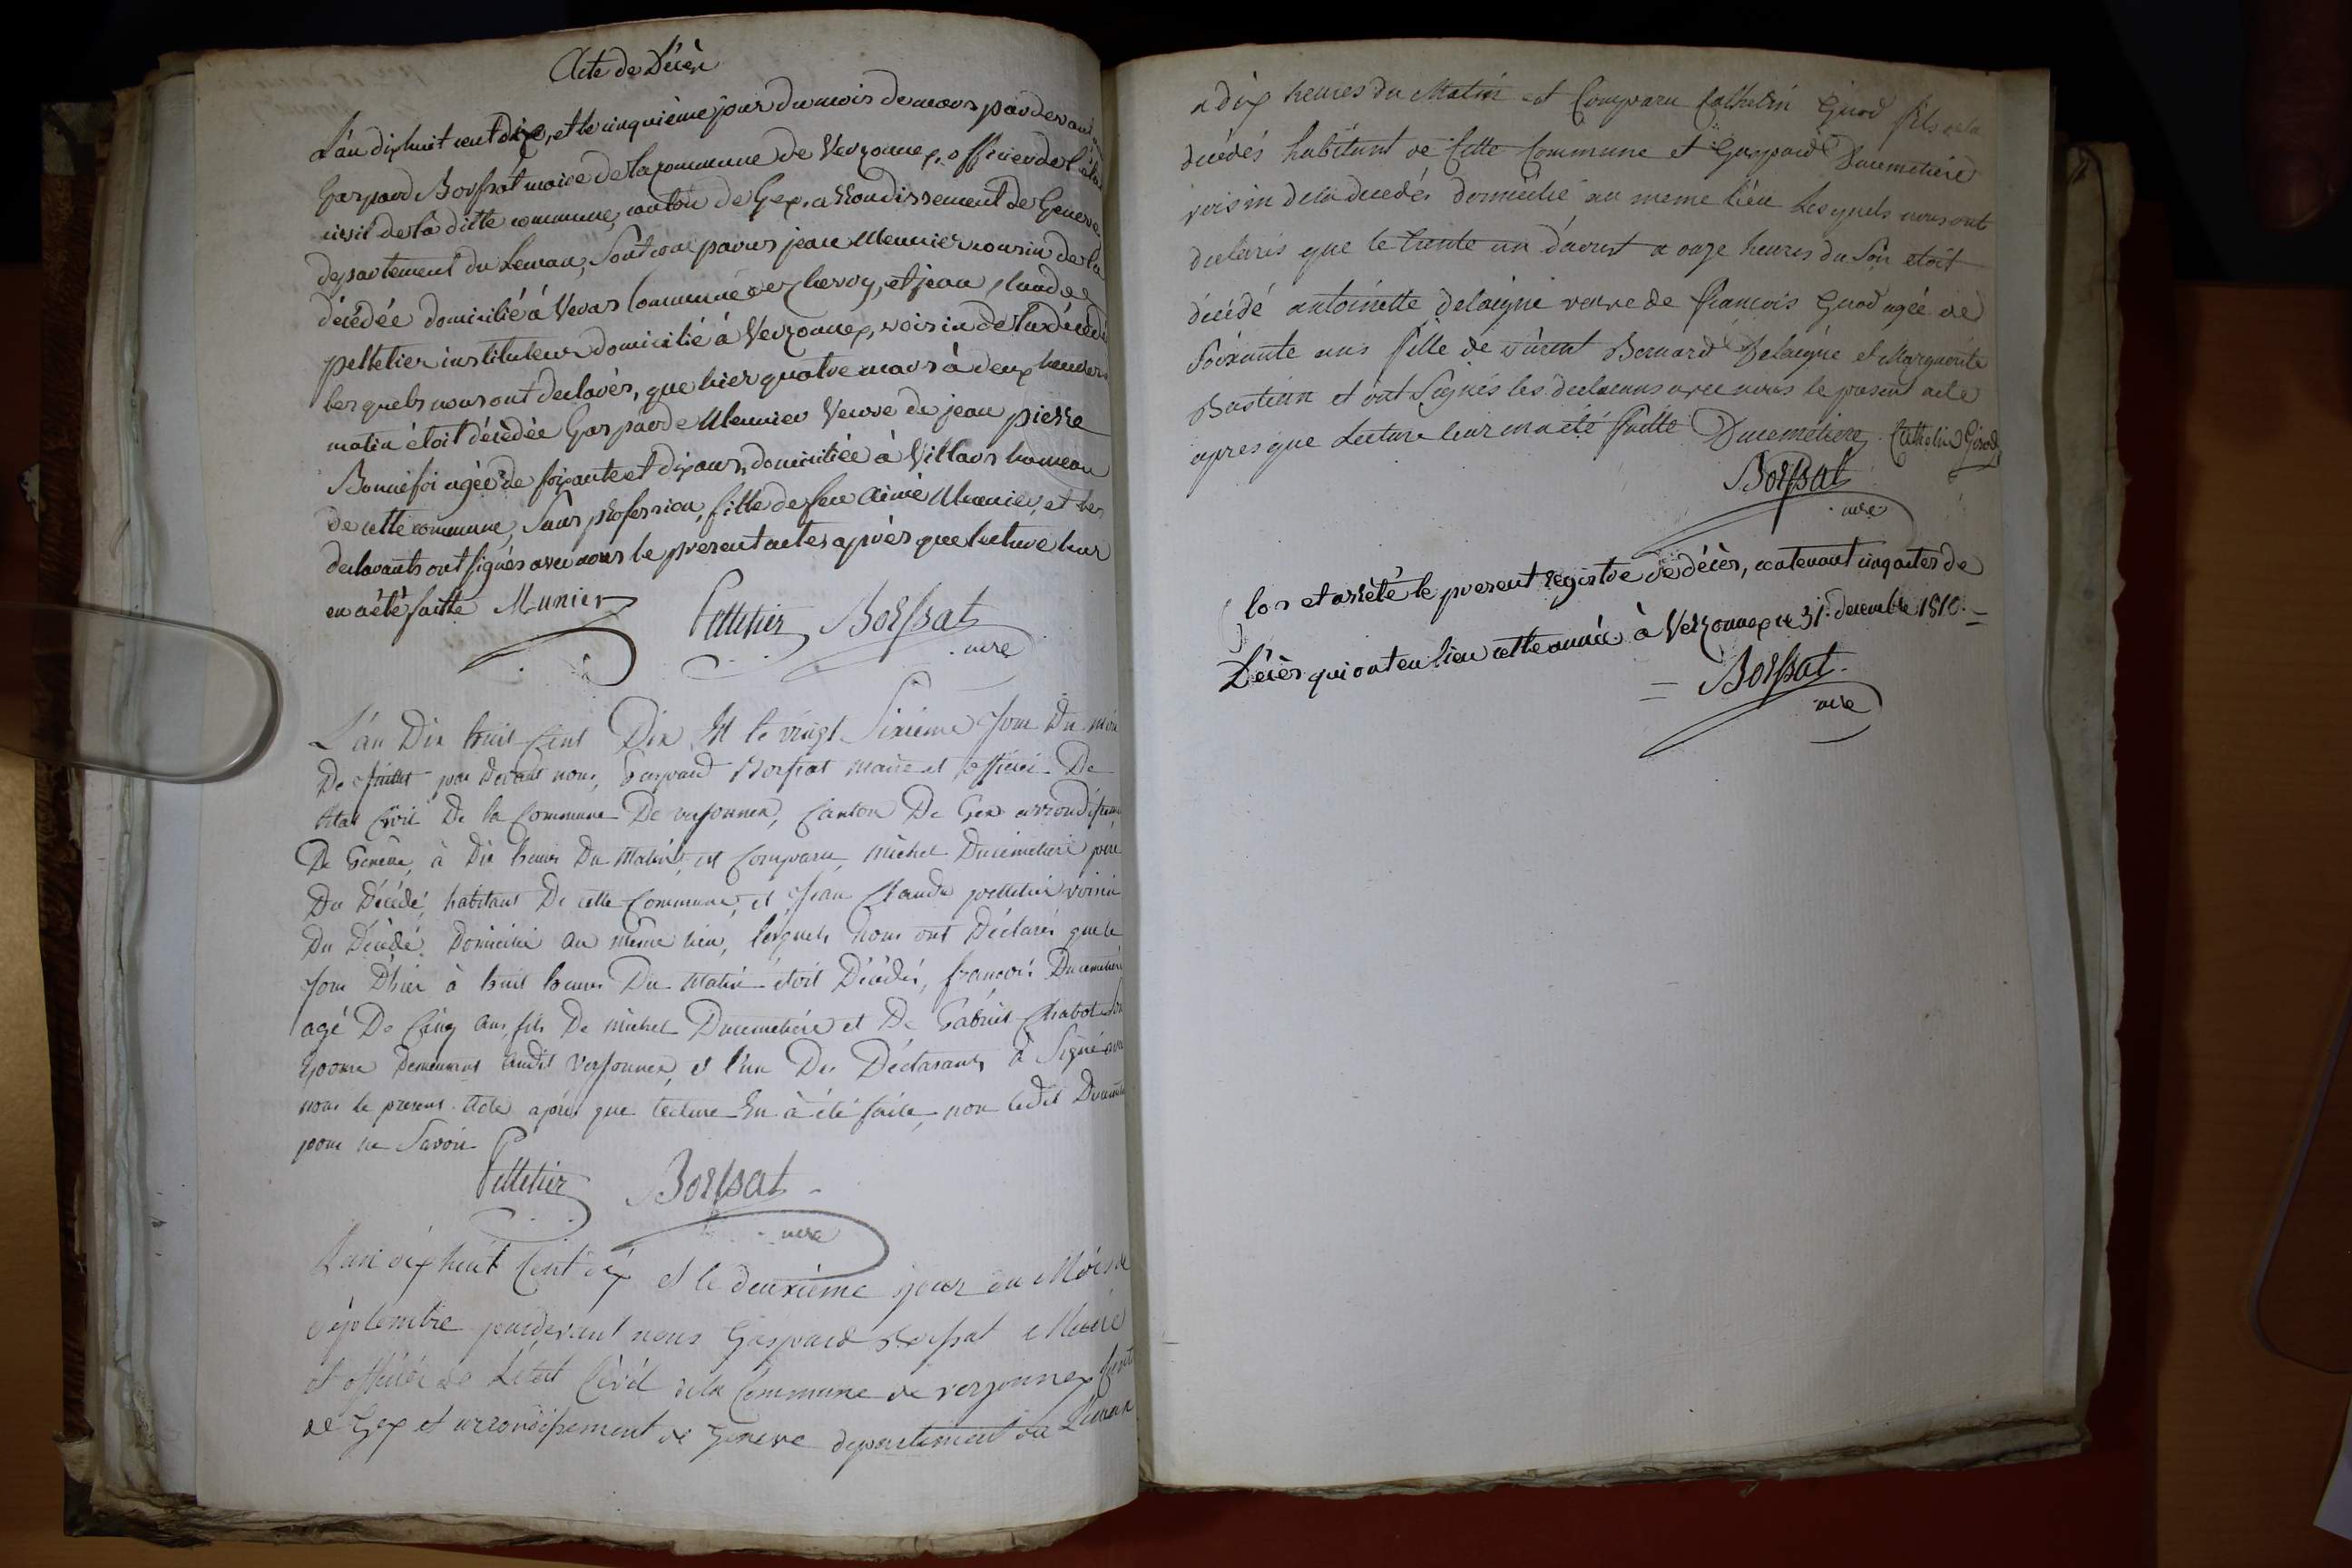 Acte de Décès
L'an dix huit cent dix, et le cinquième jour du mois de mars par devant
Gaspard Borssat maire de la commune de Verzonnex, officier de l'état
civil de la ditte commune, canton de Gex, arrondissement de Geneve
departement du Leman, Sont comparus jean Meunier cousin de la
décédée domicilié à Veras Commune de Chevry, et jean claude
pelletier instituteur domicilié à Verzonnex, voisin de la décédée
lesquels nous ont declarés, que hier quatre mars à deux heures
matin étoit décédée Gasparde Meunier Veuve de jean pierre
Bonnefoi agée de soixante et dix ans, domiciliée à Villars hameau
de cette commune, Sans profession, fille de feu Aimé Meunier, et les
declarants ont signés avec nous le present actes après que lecture leur
en a été faitte Munier Pelletier Borssat
mre
L'an Dix huit Cent Dix Et le vingt Sixieme Jour Du mois
De Juillet par devant nous, Gaspard Borssat Maire et officier De
létat Civil De la Commune De versonnex, Canton De Gex arrondissement
De Genêve, à Dix heures Du Matin, est Comparu Michel Ducimetiere père
Du Décédé, habitant De cette Commune, et Jean Claude pelletier voisin
Du Décédé Domicilié au même lieu, lesquels Nous ont Déclarés que le
Jour D'hier à huit heures Du Matin étoit Décédés, françois Ducimetiere
agé De Cinq ans, fils De michel Ducimetiere et De Gabriel Chabot Son
Epouse Demeurant audit Versonnex, et l'un Des Déclarants à Signé avec
nous le present Acte après que lecture En à été faite, non ledit Ducimetiere
pour ne Savoir
Pelletier Borssat
mre
L'an dix huit Cent dix et le deuxieme jour du Mois de
Septembre pardevant nous Gaspard Borssat Maire
et officier de L'état Civil de la Commune de verzonnex Cant
de Gex et arrondissement de Geneve departement du Leman
a dix heures du Matin est Comparu Cathelin Girod fils de la
décédés habitant de Cette Commune et Gaspard Ducimetiere
voisin de la decedés domicilié au meme lieu Lesquels nous ont
declarés que le trente un d'aoust a onze heures du Soir etoit
décédé antoinette delaigne veuve de francois Girod agée de
Soixante ans fille de Bernard Delaigne et Marguerite
Bastian et ont Signés les declarans avec nous le present acte
apres que Lecture leur en a été faitte Ducemetiere Cathelin Girod
Borssat
mre
Clos et arrêté le present registre de décès, contenant cinq actes de
Décès qui ont eu lieu cette année à Verzonnex ce 31. decembre 1810. =
= Borssat
mre